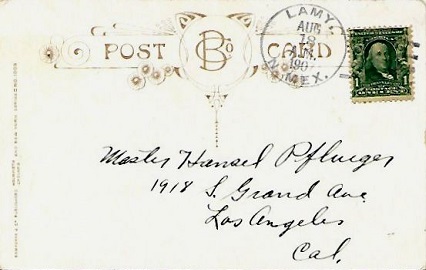 POST CARD
LAMY,
AUG
18
A.M.
190
N. MEX.
1
1
Master Hansel Pflueger
1918 S. Grand Ave
Los Angeles
Cal.